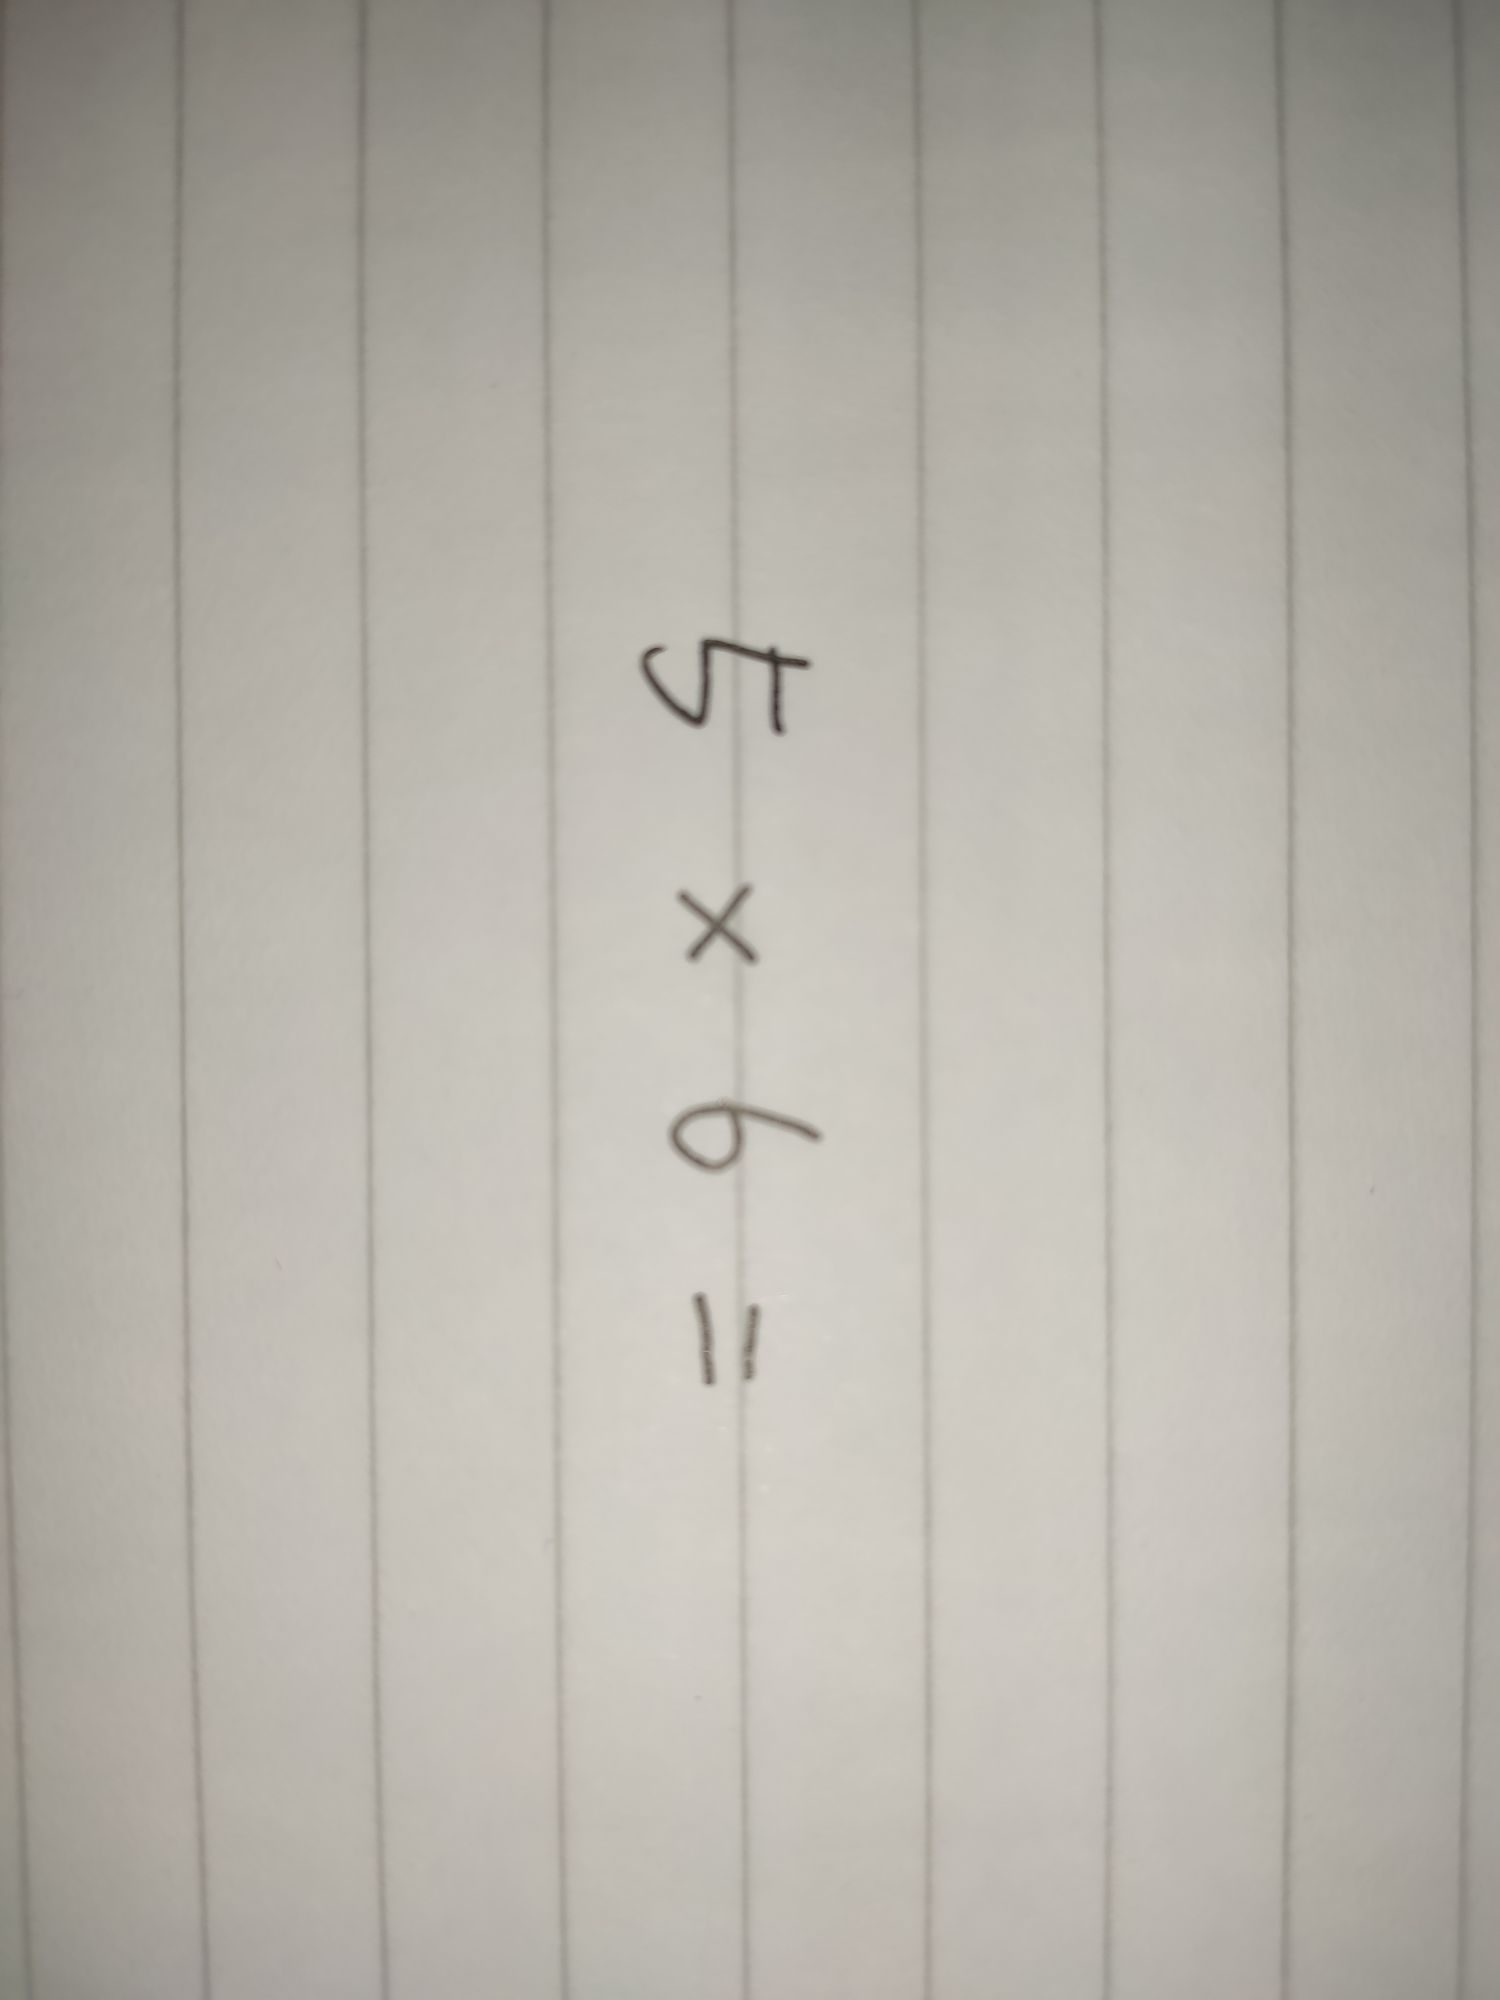 5 × 6 =